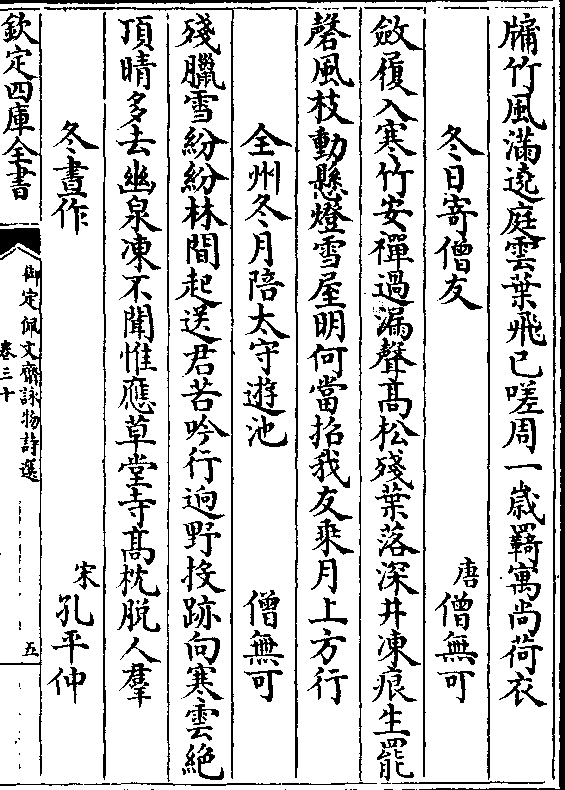 牗竹風滿遶庭雲葉飛已嗟周一嵗羇寓尚荷衣
冬日寄僧友 唐 僧無可
斂履入寒竹安禪過漏聲髙松殘葉落深井凍痕生罷
磬風枝動懸燈雪屋明何當招我友乘月上方行
全州冬月陪太守遊池 僧無可
殘臘雪紛紛林間起送君苦吟行逈野投跡向寒雲絶
頂晴多去幽泉凍不聞惟應草堂寺髙枕脱人羣
冬晝作 宋 孔平仲
欽定四庫全書
御定佩文齋詠物詩選
卷三十
五